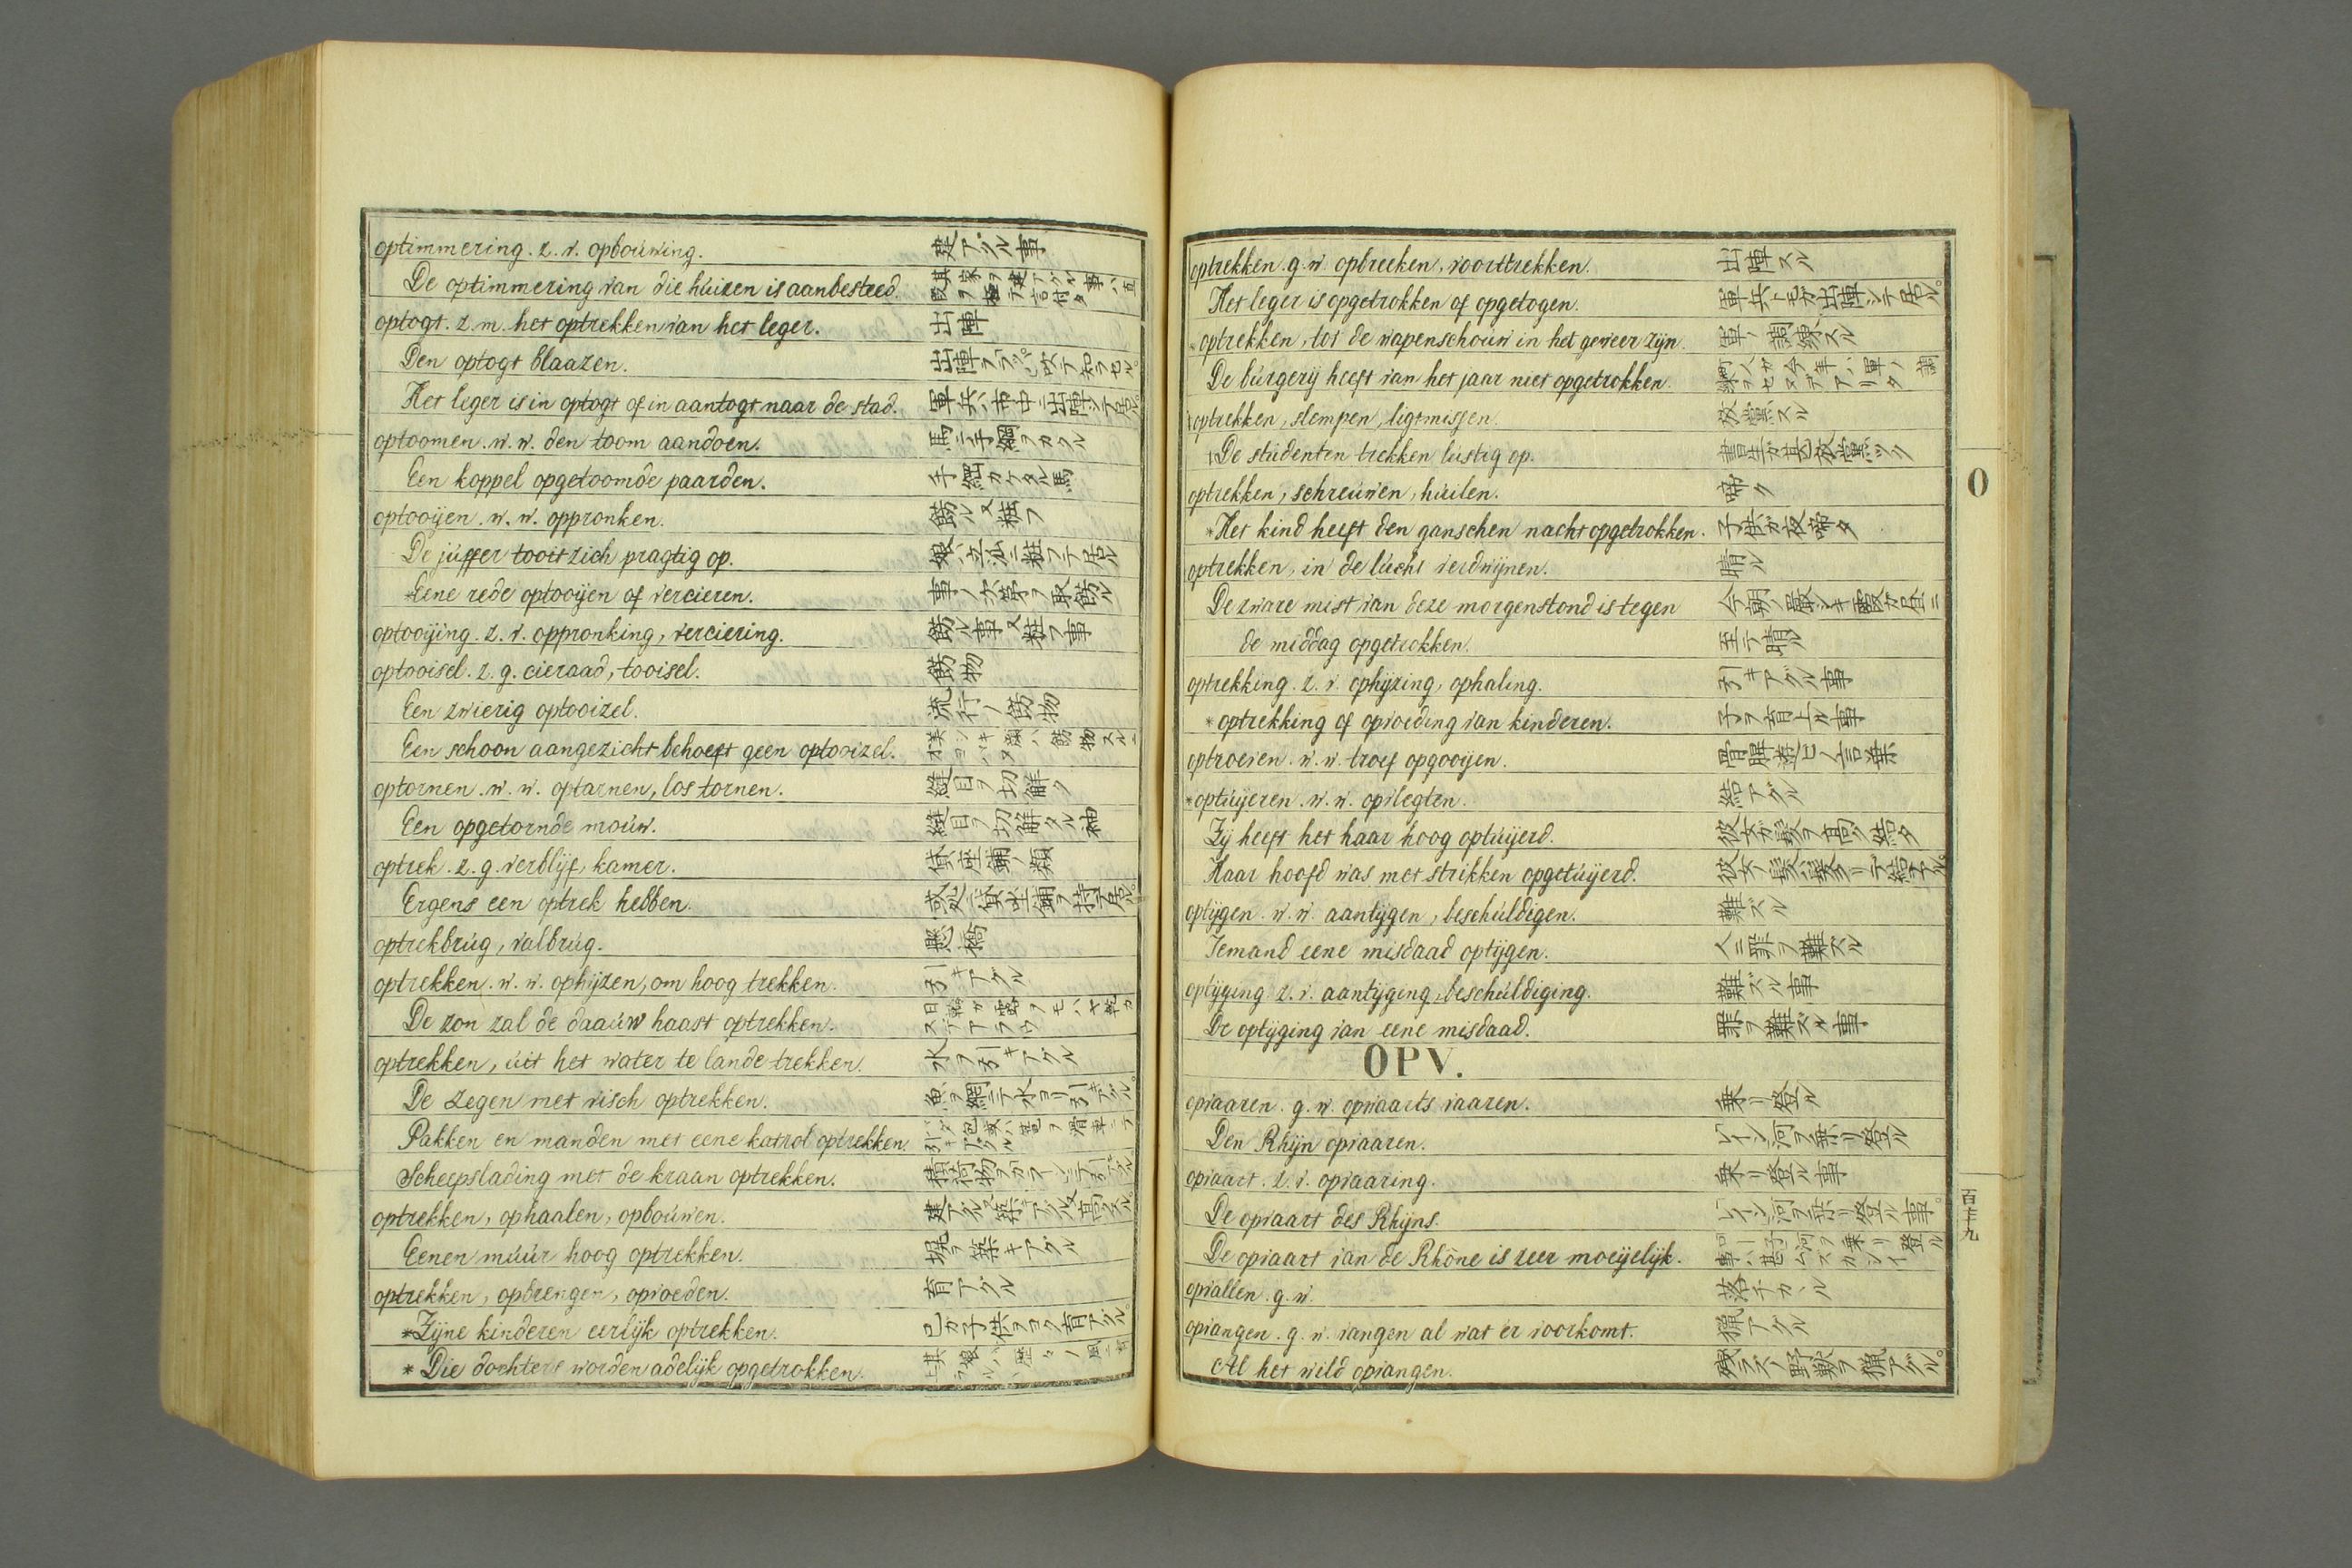 optimmering. z. v. opbouwing. 建アゲル事
De optimmering van die húizen is aanbesteed. 其家ヲ建アゲル事ハ直段ヲ極テ言付タ
optogt. z. m. het optrekken van het leger. 出陣
Den optogt blaazen. 出陣ヲラッパ吹テ知ラセル。
Het leger is in optogt of in aantogt naar de stad. 軍兵ハ市中ニ出陣シテ居ル。
optoomen. w. w. den toom aandoen. 馬ニ手綱ヲカクル
Een koppel opgetoomde paarden. 手綱カケタル馬
optooijen. w. w. oppronken. 餝ル又粧フ
De júffer tooit zich pragtig op. 娘ハ立派ニ粧フテ居ル
*Eene rede optooijen of vercieren. 事ノ次第ヲ取餝ル
optooijing. z. v. oppronking, verciering. 餝ル事又粧フ事
optooisel. z. g. cieraad, tooisel. 餝物
Een zwierig optooizel. 流行ノ餝物
Een schoon aangezicht behoeft geen optooizel. 美シキ顔ハ餝物スルニオヨバヌ
optornen. w. w. optarnen, los tornen. 縫目ヲ切解ク
Een opgetornde moúw. 縫目ヲ切解タル袖
optrek. z. g. verblijf, kamer. 借座鋪ノ類
Ergens een optrek hebben. 或処ニ借座鋪ヲ持テ居ル。
optrekbrúg, valbrúg. 懸橋
optrekken. w. w. ophijzen, om hoog trekken. 引キアゲル
De zon zal de daaúw haast optrekken. 日輪ガ露ヲモハヤ乾カスデアラウ
optrekken, úit het water te lande trekken. 水ヲ引キアゲル
De zegen met visch optrekken. 魚ヲ網ニテ水ヨリ引キアゲル。
Pakken en manden met eene katrol optrekken. 引キアゲル
Scheepslading met de kraan optrekken.
optrekken, ophaalen, opboúwen. 建アゲル又築キアゲル又高クスル。
Eenen múúr hoog optrekken. 塀ヲ築キアゲル
optrekken, opbrengen, opvoeden. 育アゲル
*Zijne kinderen eerlijk optrekken. 己カ子供ヲヨク育アゲル。
* Die dochters worden adelijk opgetrokken.
optrekken. g. w. opbreeken, voorttrekken. 出陣スル
Het leger is opgetrokken of opgetogen. 軍兵トモガ出陣シテ居ル。
*optrekken, tot de wapenschoúw in het geweer zijn. 軍ノ調練スル
De búrgerij heeft van het jaar niet opgetrokken. 町人ガ今年ハ軍ノ調練ヲセズデアリタ
optrekken, slempen, ligtmissen. 放蕩スル
De stúdenten trekken lústig op. 書生ガ甚放蕩ヅク
optrekken, schreúwen, húilen. 啼ク
*Het kind heeft den ganschen nacht opgetrokken. 子供ガ夜啼タ
optrekken, in de lúcht verdwijnen. 晴ル
De zware mist van deze morgenstond is tegen 今朝ノ厳シキ霞ガ昼ニ
de middag opgetrokken. 至テ晴ル
optrekking. z. v. ophijzing, ophaling. 引キアゲル事
*optrekking of opvoeding van kinderen. 子ヲ育上ル事
optroeven. w. w. troef opgooijen.
*optúijeren. w. w. opvlegten. 結アゲル
Zij heeft het haar hoog optúijerd. 彼女ガ髪ヲ高ク結タ
Haar hoofd was met strikken opgetúijerd.
optijgen. w. w. aantijgen, beschúldigen. 難ズル
Iemand eene misdaad optijgen. 人ニ罪ヲ難ズル
optijging. z. v. aantijging, beschúldiging. 難ズル事
De optijging van eene misdaad. 罪ヲ難ズル事
OPV.
opvaaren. g. w. opwaarts vaaren. 乗リ登ル
Den Rhijn opvaaren. レイン河ヲ乗リ登ル
opvaart. z. v. opvaaring. 乗リ登ル事
De opvaart des Rhijns. レイン河ヲ乗リ登ル事。
De opvaart van de Rhône is zeer moeijelijk. 事ハ甚ムズカシイ
opvallen. g. w. 落チカヽル
opvangen. g. w. vangen al wat er voorkomt. 猟アゲル
Al het wild opvangen. 残ラズノ野獣ヲ猟アゲル。
O
百三十九